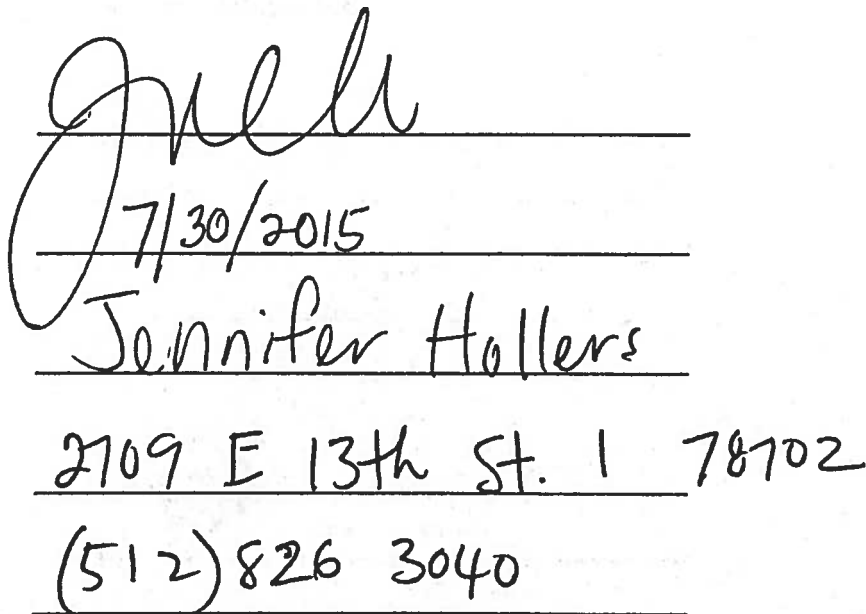 7/30/2015
Jennifer Hollers
2709 E 13th St. 1 78702
(512) 826 3040